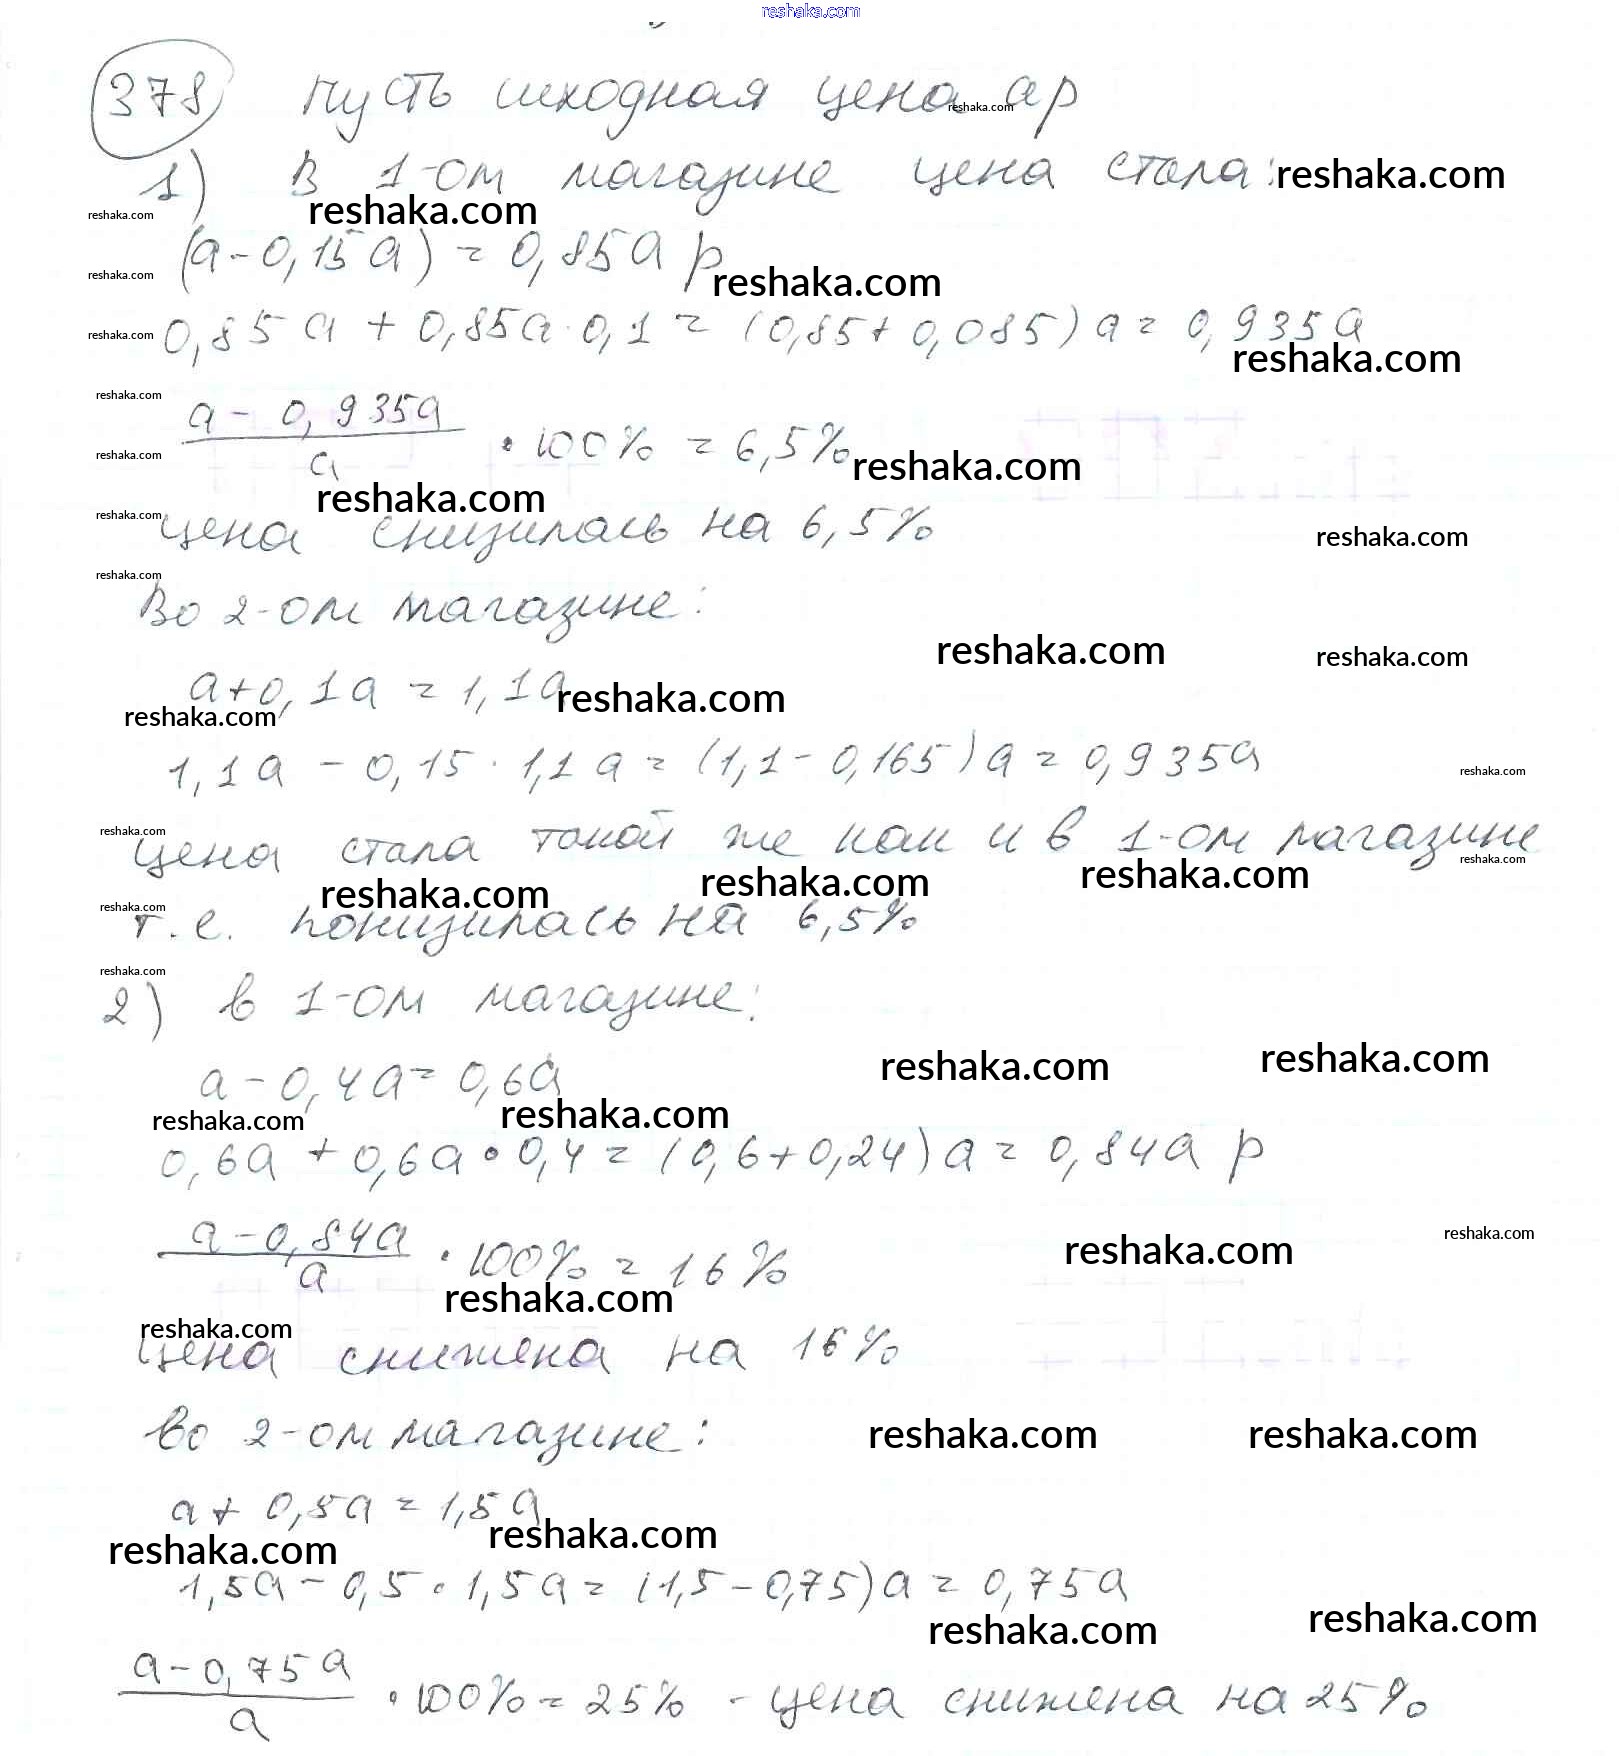 reshaka.com
378 Пусть исходная цена a р
reshaka.com
1) В 1-ом магазине цена стала:
reshaka.com
reshaka.com reshaka.com
(a - 0,15a) = 0,85a р
reshaka.com reshaka.com
0,85a + 0,85a · 0,1 = (0,85 + 0,085)a = 0,935a
reshaka.com reshaka.com
reshaka.com
(a - 0,935a)/a · 100% = 6,5%
reshaka.com reshaka.com
reshaka.com
цена снизилась на 6,5%
reshaka.com reshaka.com
reshaka.com
Во 2-ом магазине:
reshaka.com reshaka.com
a + 0,1a = 1,1a
reshaka.com reshaka.com
1,1a - 0,15 · 1,1a = (1,1 - 0,165)a = 0,935a
reshaka.com
reshaka.com
цена стала такой же как и в 1-ом магазине
reshaka.com reshaka.com reshaka.com reshaka.com
reshaka.com
т.е. понизилась на 6,5%
reshaka.com
2) в 1-ом магазине:
a - 0,4a = 0,6a
reshaka.com reshaka.com
reshaka.com reshaka.com
0,6a + 0,6a · 0,4 = (0,6 + 0,24)a = 0,84a р
(a - 0,84a)/a · 100% = 16%
reshaka.com reshaka.com
reshaka.com
reshaka.com
цена снижена на 16%
во 2-ом магазине:
reshaka.com reshaka.com
a + 0,5a = 1,5a
reshaka.com reshaka.com
1,5a - 0,5 · 1,5a = (1,5 - 0,75)a = 0,75a
reshaka.com reshaka.com
(a - 0,75a)/a · 100% = 25% - цена снижена на 25%